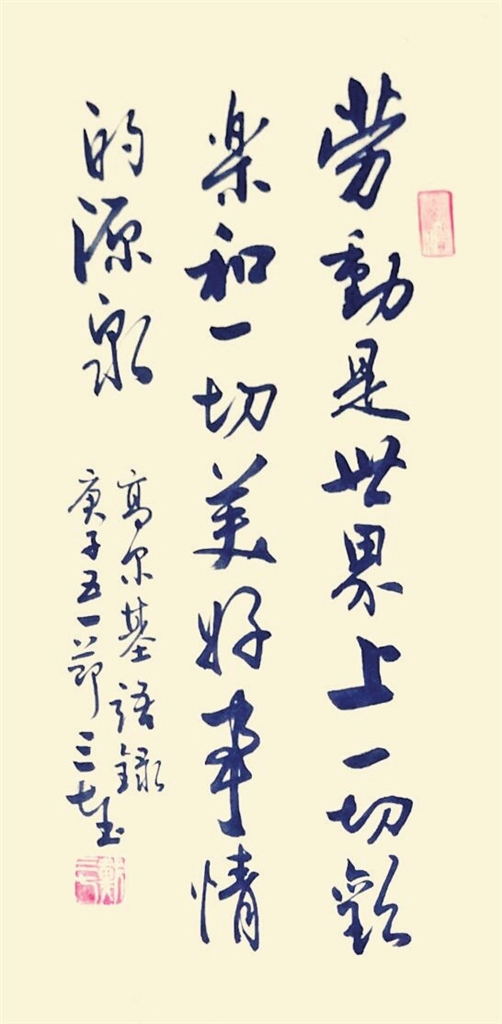 劳動是世界上一切歡
楽和一切美好事情
的源泉
高尔基語録
庚子五一節三